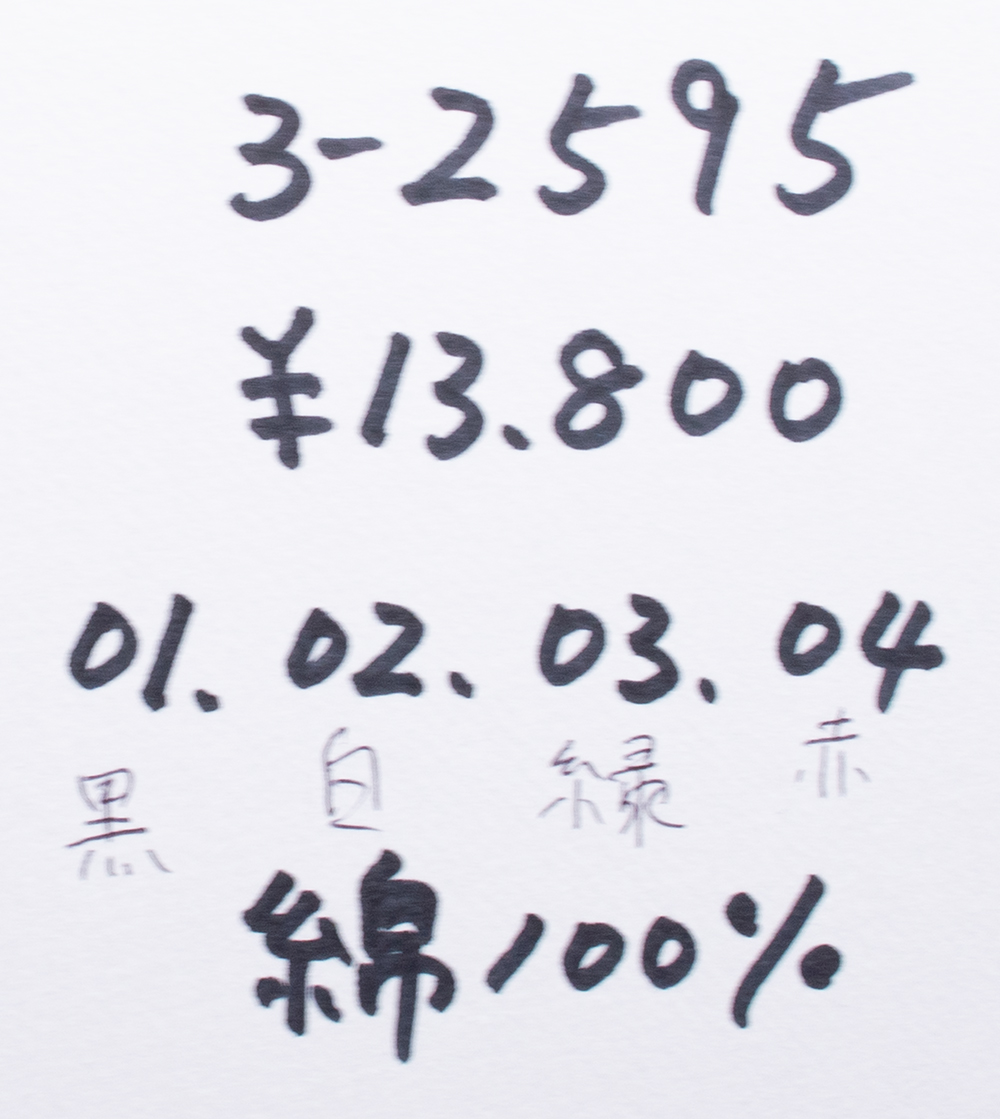 3-2595
¥13.800
01. 02. 03. 04
黒 白 緑 赤
綿100%